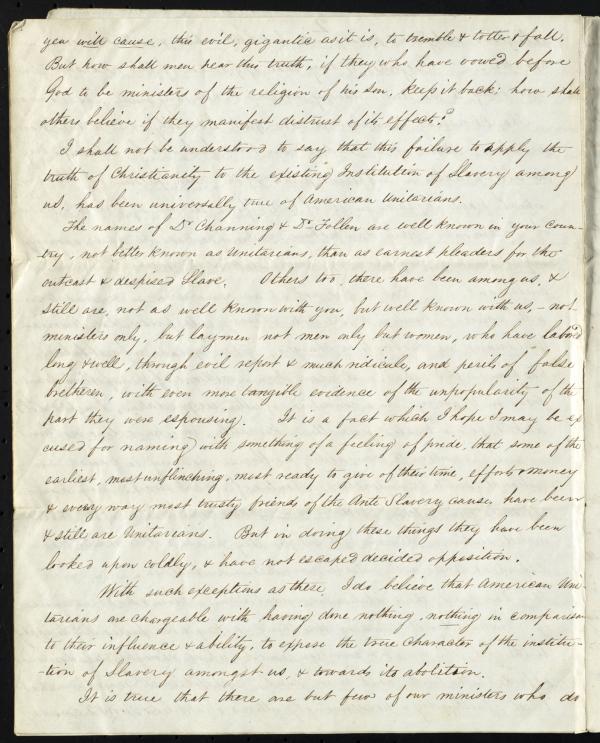 yea will cause, this evil, gigantic as it is, to tremble & totter & fall.
But how shall men hear this truth, if they who have vowed before
God to be ministers of the religion of his son, keep it back; how shall
others believe if they manifest distrust of its effects?
I shall not be understood to say that this failure to apply the
truth of Christianity to the existing Institution of Slavery among
us, has been universally true of American Unitarians.
The names of Dr Channing & Dr Follen are well known in your coun-
-try, not better known as Unitarians, than as earnest pleaders for the
outcast & despised Slave. Others too, there have been among us, &
still are, not as well known with you, but well known with us, - not
ministers only, but laymen not men only but women, who have labor'd
long & well, through evil report & much ridicule, and perils of false
bretheren, with even more tangible evidence of the unpopularity of the
part they were espousing. It is a fact which I hope I may be ex
cused for naming with something of a feeling of pride, that some of the
earliest, most unflinching, most ready to give of their time, efforts & money
& every way most trusty friends of the Anti Slavery cause, have been
& still are Unitarians. But in doing these things they have been
looked upon coldly, & have not escaped decided opposition.
With such exceptions as these, I do believe that American Uni-
tarians are chargeable with having done nothing, nothing in comparison
to their influence & ability, to expose the true character of the institu-
-tion of Slavery amongst us, & towards its abolition.
It is true that there are but few of our ministers who do